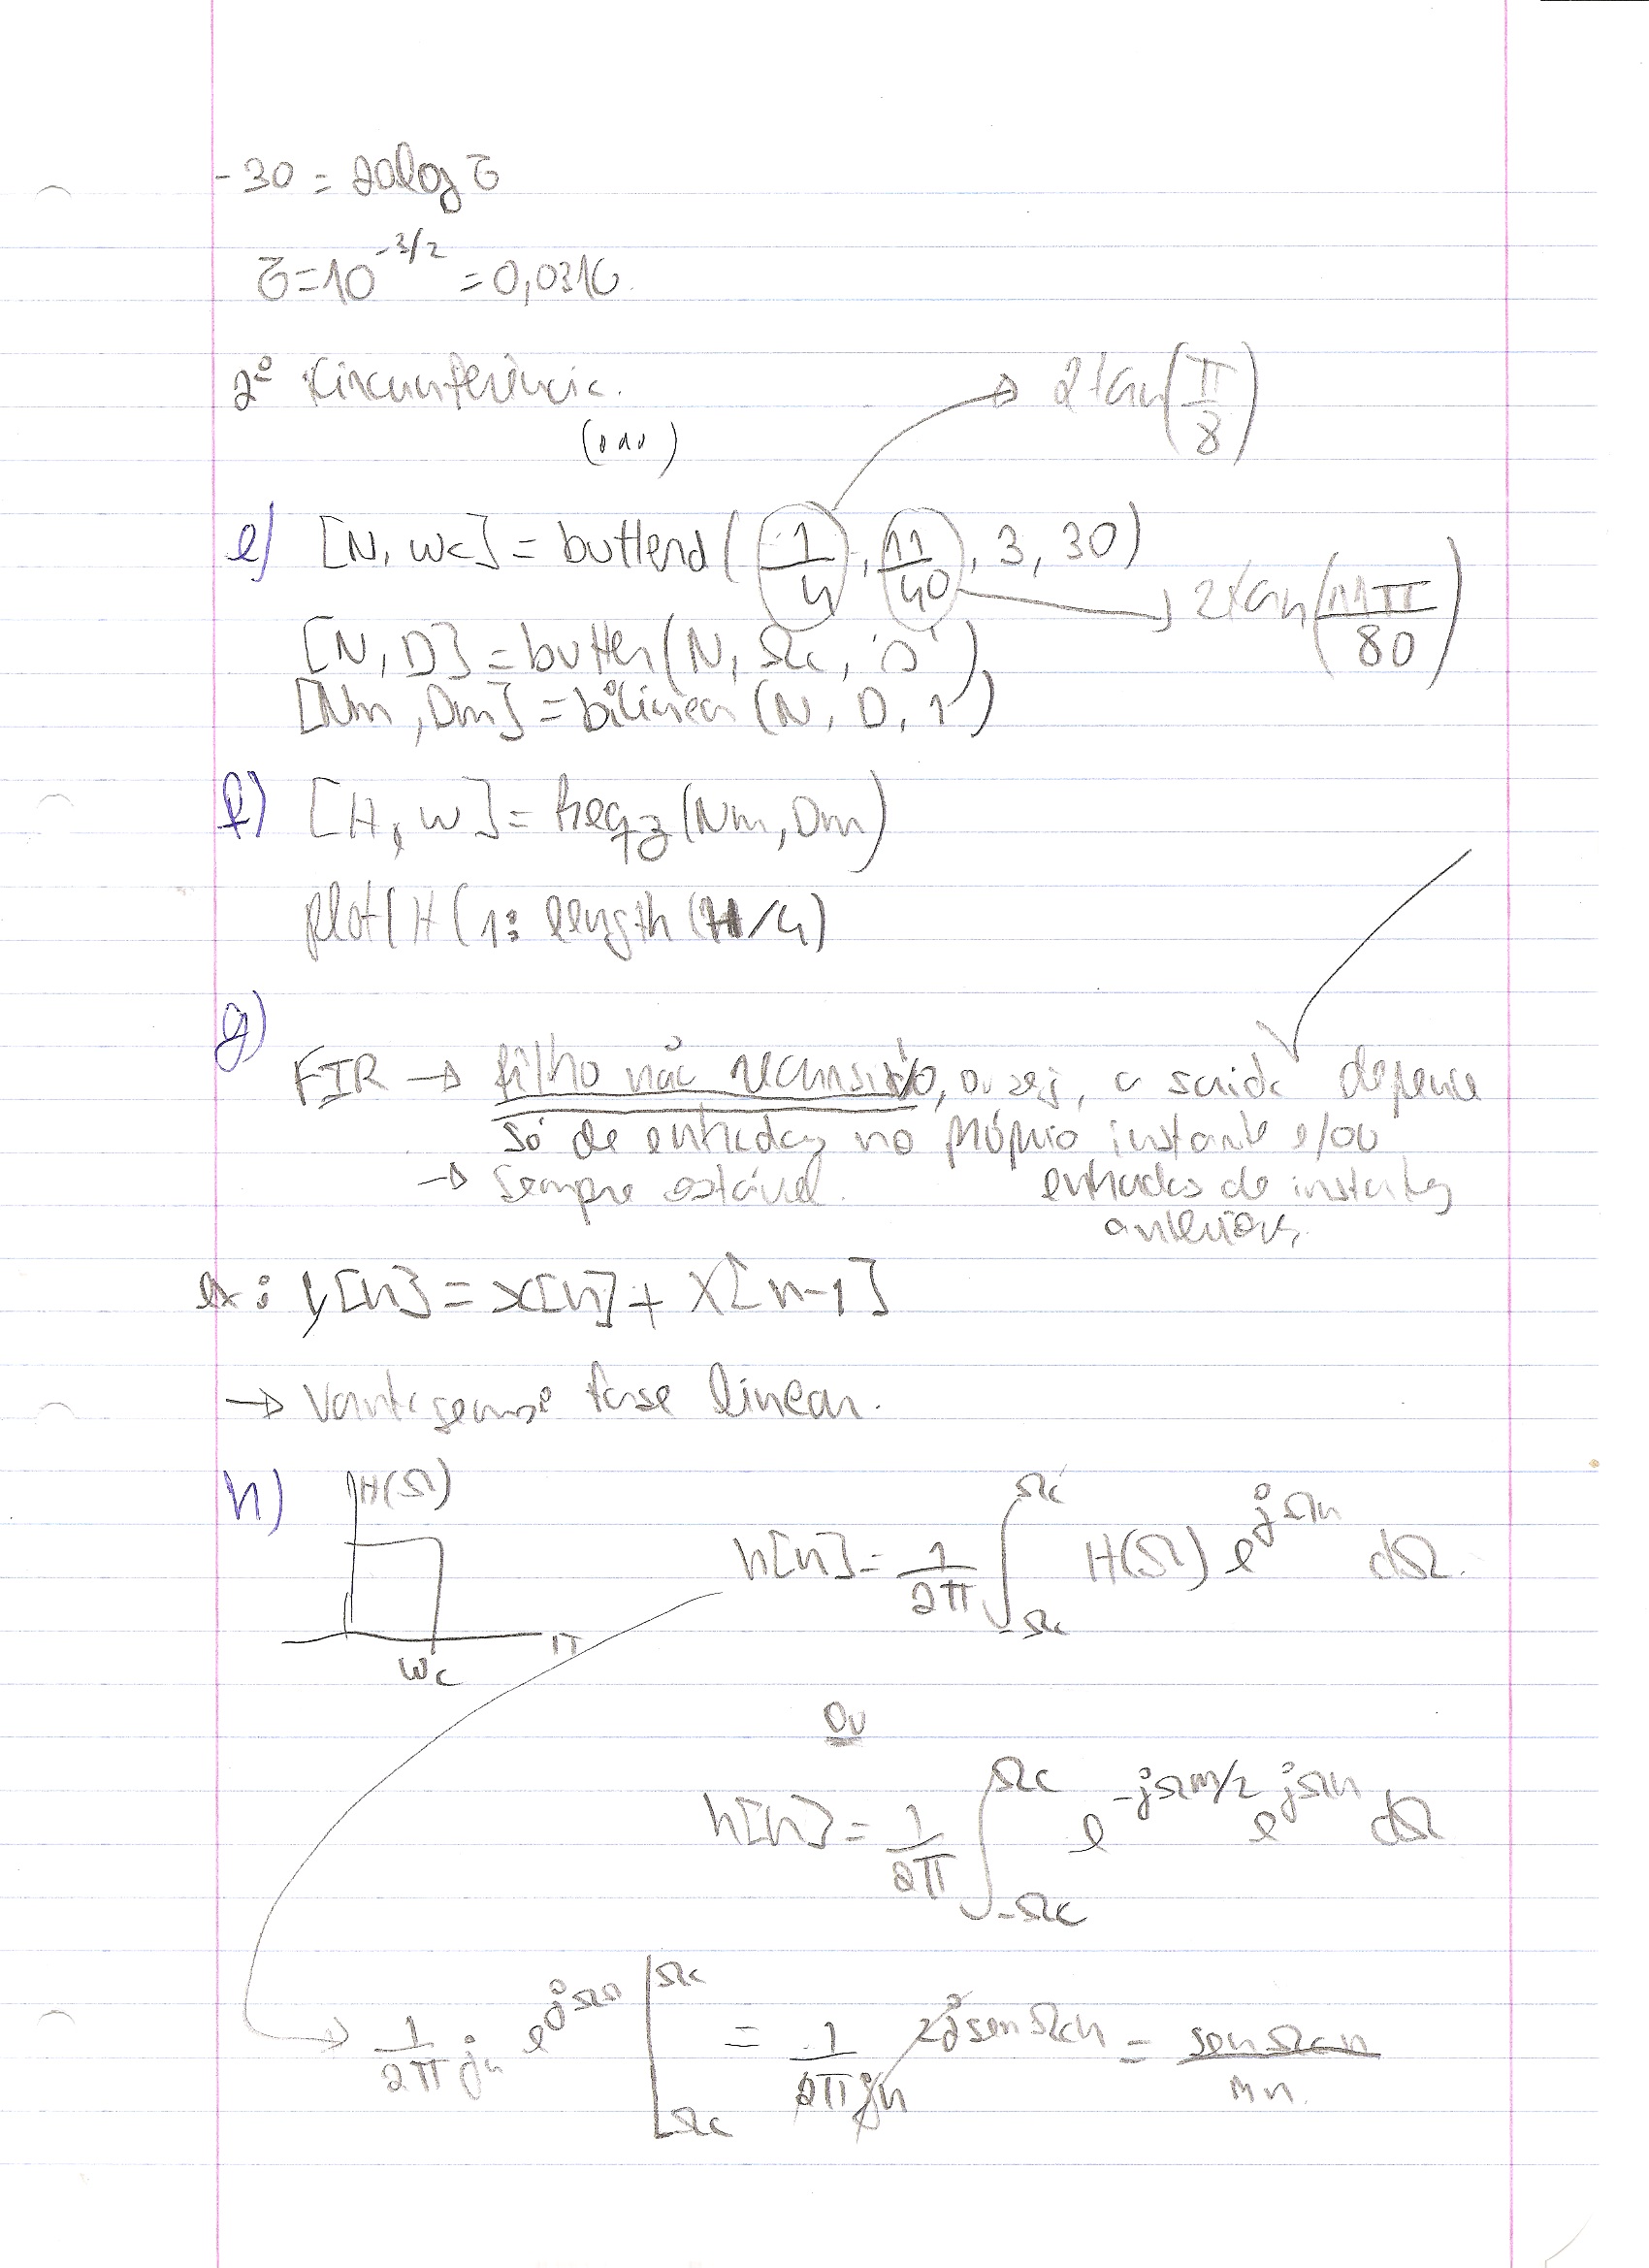 -30 = 20log δ
δ = 10^{-3/2} = 0,0316.
2º Circunferência.
(...) → 2tan(π/8)
e) [N, wc] = buttord(1/4, 11/40, 3, 30)
→ 2tan(11π/80)
[N, D] = butter(N, Ωc, 's')
[Nm, Dm] = bilinear(N, D, 1)
f) [H, w] = freqz(Nm, Dm)
plot(H(1: length(H/4)
g)
FIR → filtro não recursivo, ou sej, a saída depende
só de entradas no próprio instante e/ou
→ Sempre estável. entradas de instantes
anteriores.
ex: y[n] = x[n] + x[n-1]
→ Vantagens: fase linear.
h) H(Ω) h[n] = 1/2π ∫_{-Ωc}^{Ωc} H(Ω) e^{jΩn} dΩ.
π
wc
Ou
h[n] = 1/2π ∫_{-Ωc}^{Ωc} e^{-jΩm/2} e^{jΩn} dΩ
→ 1/2πjn e^{jΩn} |_{-Ωc}^{Ωc} = 1/2πjn 2jsenΩcn = senΩcn/πn.